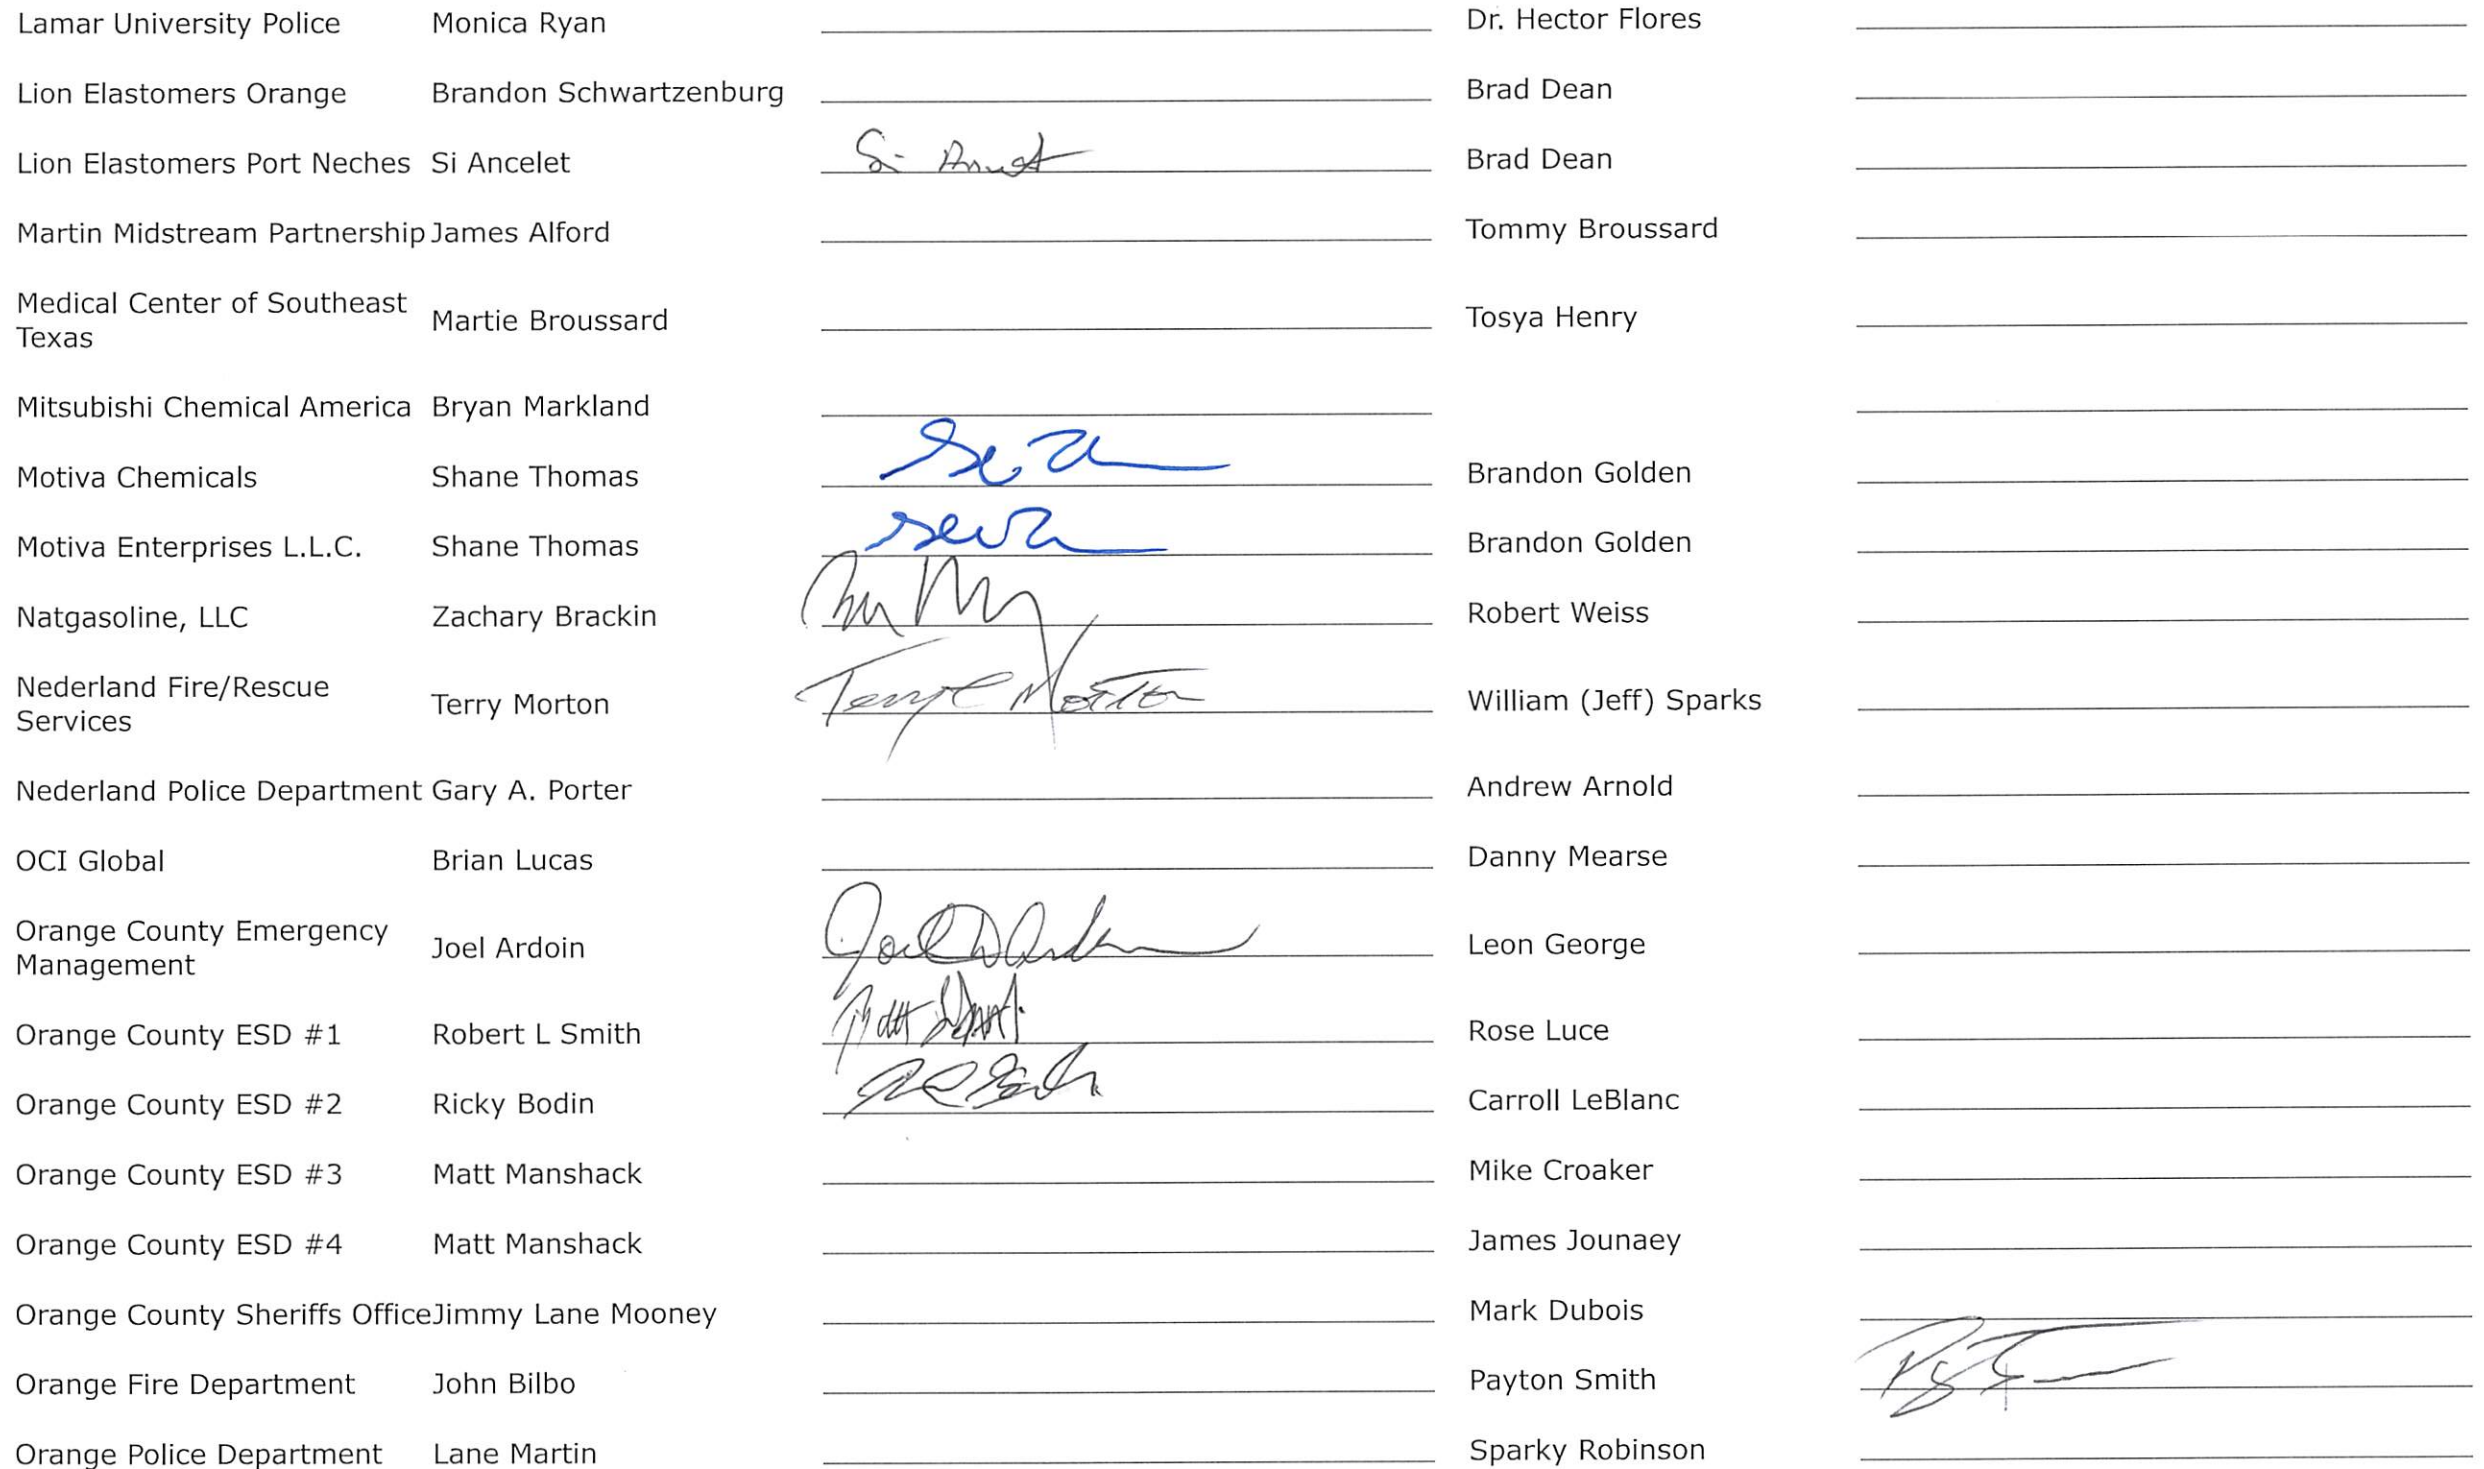 Lamar University Police Monica Ryan Dr. Hector Flores
Lion Elastomers Orange Brandon Schwartzenburg Brad Dean
Lion Elastomers Port Neches Si Ancelet Si Brad Dean
Martin Midstream Partnership James Alford Tommy Broussard
Medical Center of Southeast
Texas
Martie Broussard Tosya Henry
Mitsubishi Chemical America Bryan Markland
Motiva Chemicals Shane Thomas Brandon Golden
Motiva Enterprises L.L.C. Shane Thomas Brandon Golden
Natgasoline, LLC Zachary Brackin Robert Weiss
Nederland Fire/Rescue
Services
Terry Morton Morton William (Jeff) Sparks
Nederland Police Department Gary A. Porter Andrew Arnold
OCI Global Brian Lucas Danny Mearse
Orange County Emergency
Management
Joel Ardoin Joel Leon George
Orange County ESD #1 Robert L Smith Matt Rose Luce
Orange County ESD #2 Ricky Bodin Carroll LeBlanc
Orange County ESD #3 Matt Manshack Mike Croaker
Orange County ESD #4 Matt Manshack James Jounaey
Orange County Sheriffs Office Jimmy Lane Mooney Mark Dubois
Orange Fire Department John Bilbo Payton Smith
Orange Police Department Lane Martin Sparky Robinson